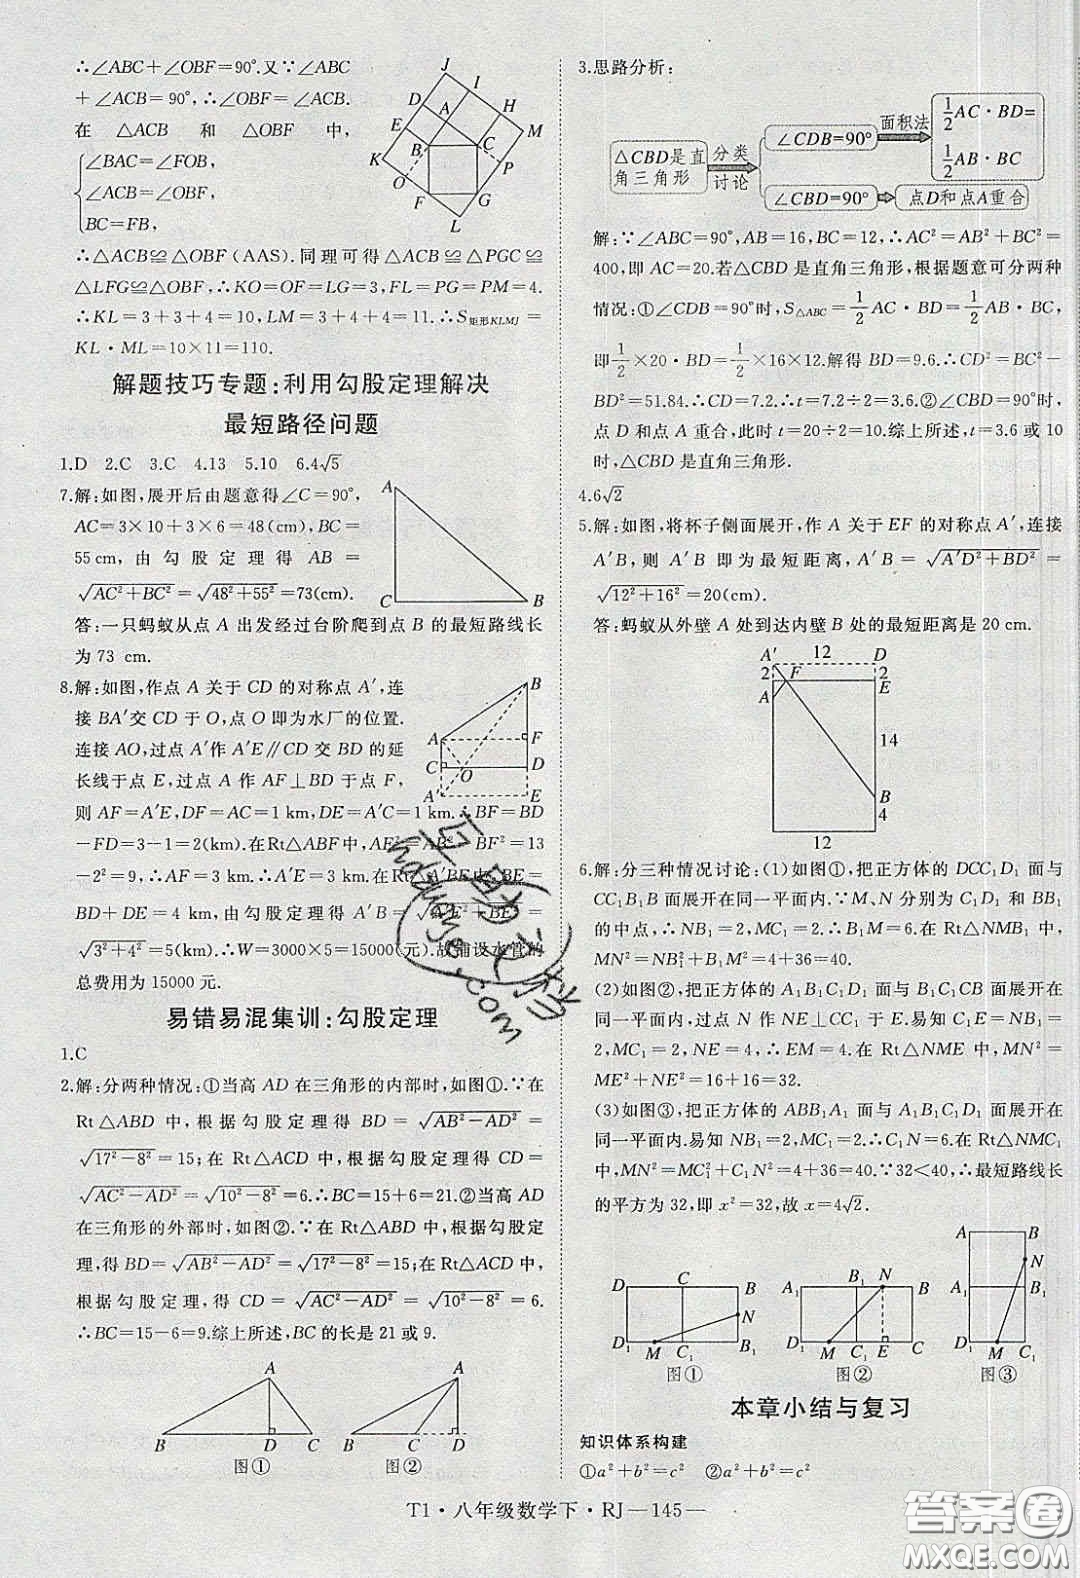 ∴∠ABC+∠OBF=90°.又∵∠ABC
+∠ACB=90°,∴∠OBF=∠ACB.
在 △ACB 和 △OBF 中,
∠BAC=∠FOB,
∠ACB=∠OBF,
BC=FB,
∴△ACB≌△OBF(AAS).同理可得△ACB≌△PGC≌
△LFG≌△OBF.∴KO=OF=LG=3,FL=PG=PM=4.
∴KL=3+3+4=10,LM=3+4+4=11.∴S矩形KLMJ=
KL·ML=10×11=110.
J
I
D
A
H
E
M
B
C
K
P
O
F
G
L
解题技巧专题:利用勾股定理解决
最短路径问题
1.D 2.C 3.C 4.13 5.10 6.4√5
7.解:如图,展开后由题意得∠C=90°,
AC=3×10+3×6=48(cm),BC=
55cm,由勾股定理得 AB=
√AC²+BC²=√48²+55²=73(cm).
答:一只蚂蚁从点 A 出发经过台阶爬到点 B 的最短路线长
为 73 cm.
A
C
B
8.解:如图,作点 A 关于 CD 的对称点 A′,连
接 BA′交 CD 于 O,点 O 即为水厂的位置.
连接 AO,过点 A′作 A′E∥CD 交 BD 的延
长线于点 E,过点 A 作 AF⊥BD 于点 F,
则 AF=A′E,DF=AC=1 km,DE=A′C=1 km.∴BF=BD
-FD=3-1=2(km).在Rt△ABF中,AF²=AB²-BF²=13
-2²=9,∴AF=3 km.∴A′E=3 km.在Rt△A′BE中,BE=
BD+DE=4 km,由勾股定理得 A′B=√A′E²+BE²=
√3²+4²=5(km).∴W=3000×5=15000(元).故铺设水管的
总费用为 15000 元.
B
A
F
C
O
D
A′
E
易错易混集训:勾股定理
1.C
2.解:分两种情况:①当高 AD 在三角形的内部时,如图①.∵在
Rt△ABD 中,根据勾股定理得 BD=√AB²-AD²=
√17²-8²=15;在 Rt△ACD 中,根据勾股定理得 CD=
√AC²-AD²=√10²-8²=6.∴BC=15+6=21.②当高 AD
在三角形的外部时,如图②.∵在 Rt△ABD 中,根据勾股定
理,得 BD=√AB²-AD²=√17²-8²=15;在 Rt△ACD 中,
根据勾股定理,得 CD=√AC²-AD²=√10²-8²=6.
∴BC=15-6=9.综上所述,BC 的长是 21 或 9.
A
B
D
C
图①
A
B
C
D
图②
3.思路分析:
△CBD是直
角三角形
分类
讨论
∠CDB=90°
面积法
1/2 AC·BD=
1/2 AB·BC
∠CBD=90°
点D和点A重合
解:∵∠ABC=90°,AB=16,BC=12,∴AC²=AB²+BC²=
400,即 AC=20.若△CBD 是直角三角形,根据题意可分两种
情况:①∠CDB=90°时,S△ABC=1/2 AC·BD=1/2 AB·BC,
即1/2×20·BD=1/2×16×12.解得 BD=9.6.∴CD²=BC²-
BD²=51.84.∴CD=7.2.∴t=7.2÷2=3.6.②∠CBD=90°时,
点 D 和点 A 重合,∴t=20÷2=10.综上所述,t=3.6 或 10
时,△CBD 是直角三角形.
4.6√2
5.解:如图,将杯子侧面展开,作 A 关于 EF 的对称点 A′,连接
A′B,则 A′B 即为最短距离,A′B=√A′D²+BD²=
√12²+16²=20(cm).
答:蚂蚁从外壁 A 处到达内壁 B 处的最短距离是 20 cm.
A′
12
D
2
F
2
A
E
14
B
4
12
6.解:分三种情况讨论:(1)如图①,把正方体的 DCC₁D₁ 面与
CC₁B₁B 面展开在同一平面内.∵M、N 分别为 CD₁和 BB₁
的中点,∴NB₁=2,MC₁=2.在 Rt△NMB₁ 中,
MN²=NB₁²+MB₁²=4+36=40.
(2)如图②,把正方体的 A₁B₁C₁D₁ 面与 B₁C₁CB 面展开在
同一平面内,过点 N 作 NE⊥CC₁于 E.易知 C₁E=NB₁=
2,MC₁=2,NE=4,∴EM=4.在 Rt△NME 中,MN²=
ME²+NE²=16+16=32.
(3)如图③,把正方体的 ABB₁A₁ 面与 A₁B₁C₁D₁ 面展开在
同一平面内.易知 NB₁=2,MC₁=2.∴C₁N=6.在Rt△NMC₁
中,MN²=MC₁²+NC₁²=4+36=40.∵32<40,∴最短路线长
的平方为 32,即 x²=32,故 x=4√2.
D
C
B
N
D₁
M
C₁
B₁
图①
A₁
B₁
N
B
D₁
M
C₁
E
C
图②
A
B
N
A₁
B₁
D₁
M
C₁
图③
本章小结与复习
知识体系构建
①a²+b²=c² ②a²+b²=c²
T1·八年级数学下·RJ—145—
答案圈
MXQE.COM